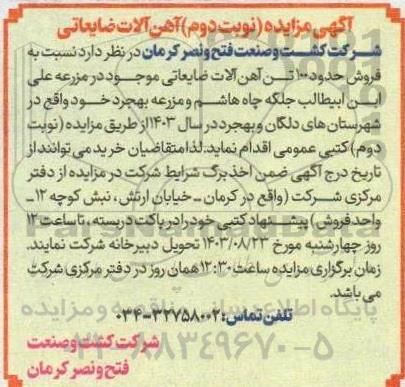 آگهی مزایده (نوبت دوم) آهن آلات ضایعاتی
شرکت کشت و صنعت فتح و نصر کرمان در نظر دارد نسبت به
فروش حدود ۱۰۰ تن آهن آلات ضایعاتی موجود در مزرعه علی
ابن ابیطالب جلگه چاه هاشم و مزرعه بهجرد خود واقع در
شهرستان های دلگان و بهجرد در سال ۱۴۰۳ از طریق مزایده (نوبت
دوم) کتبی عمومی اقدام نماید. لذا متقاضیان خرید می توانند از
تاریخ درج آگهی ضمن اخذ برگ شرایط شرکت در مزایده از دفتر
مرکزی شرکت (واقع در کرمان - خیابان ارتش، نبش کوچه ۱۲ -
واحد فروش) پیشنهاد کتبی خود را در پاکت دربسته، تا ساعت ۱۲
روز چهارشنبه مورخ ۱۴۰۳/۰۸/۲۳ تحویل دبیرخانه شرکت نمایند.
زمان برگزاری مزایده ساعت ۱۲:۳۰ همان روز در دفتر مرکزی شرکت
می باشد.
پایگاه اطلاع رسانی مناقصه و مزایده
تلفن تماس: ۳۲۷۵۸۰۰۲-۰۳۴
۰۲۱-۸۸۳۴۹۶۷۰-۵
شرکت کشت و صنعت
فتح و نصر کرمان